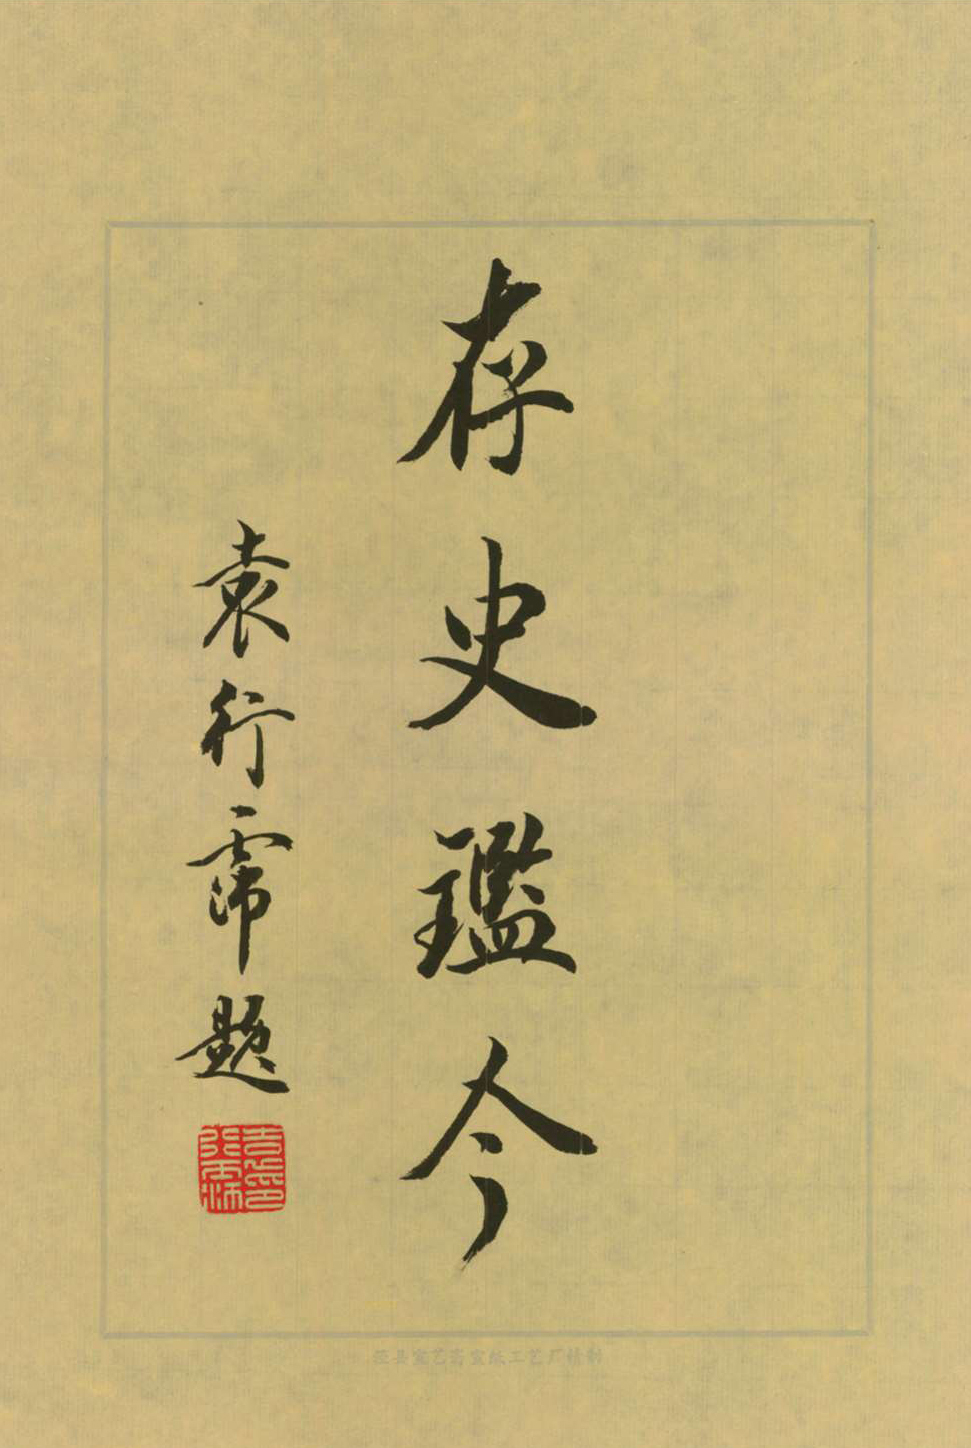 存史鑑今
袁行霈题
泾县宣艺斋宣纸工艺厂精制